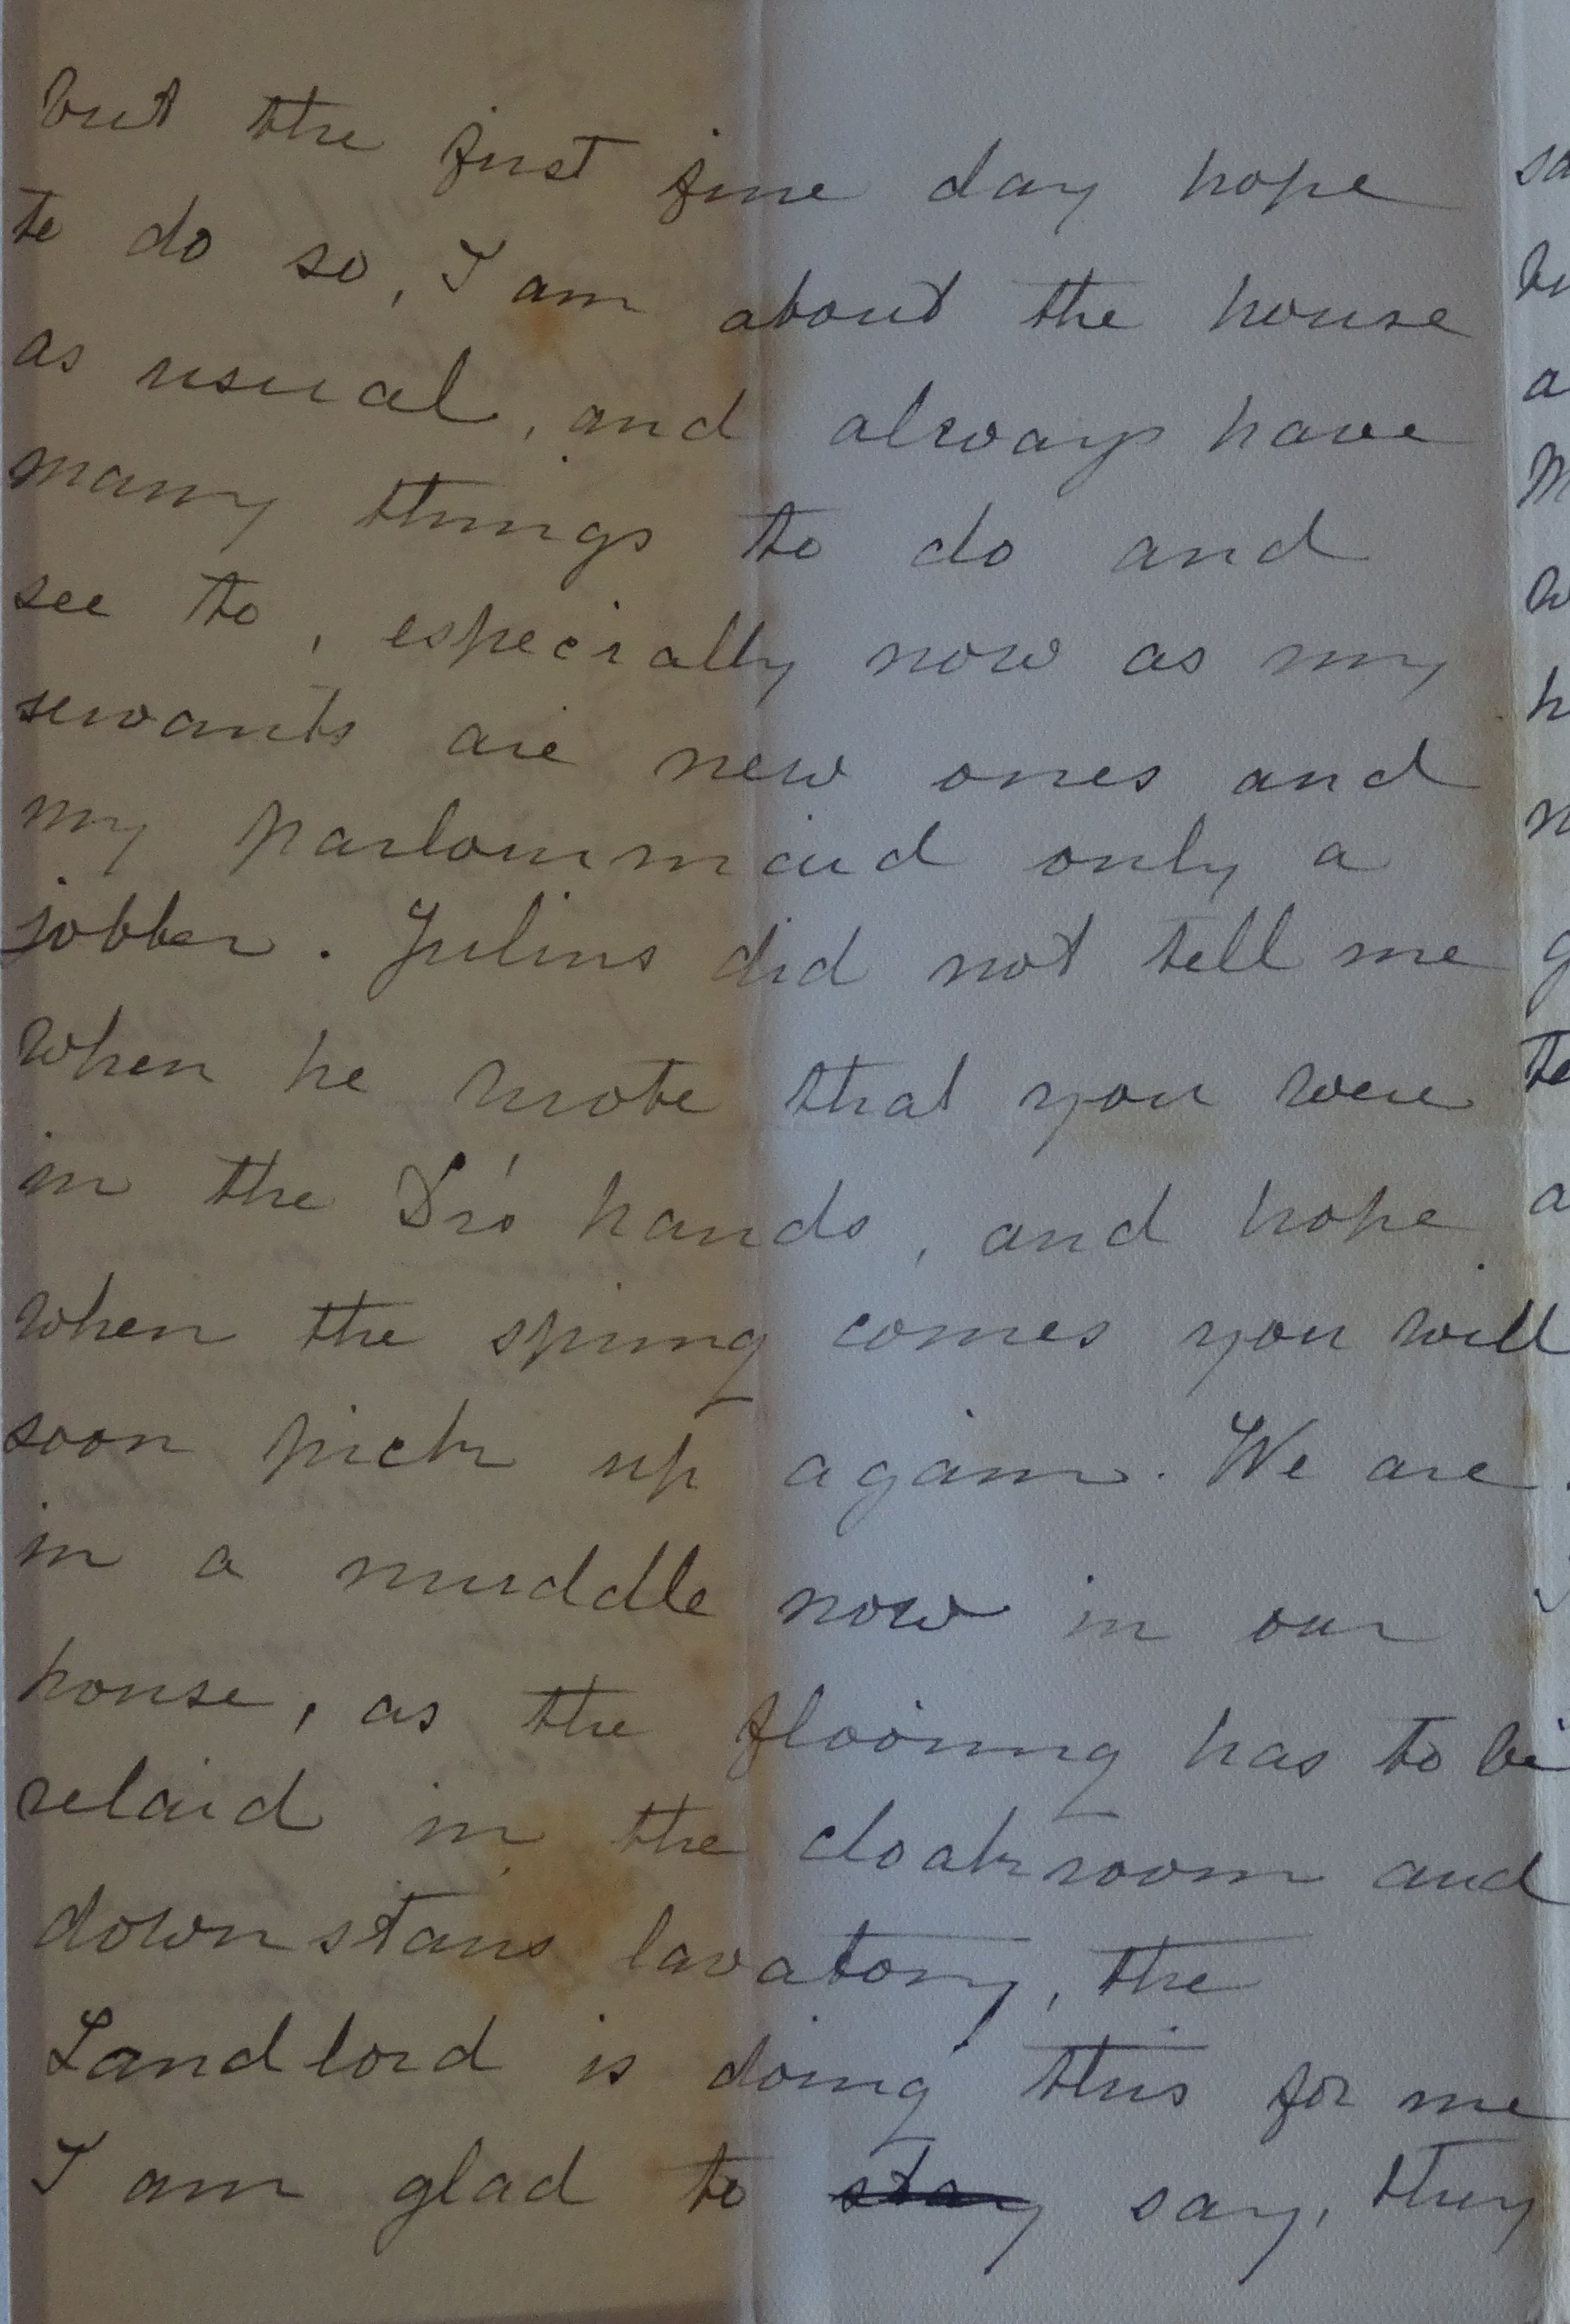 but the first fine day hope
to do so, I am about the house
as usual, and always have
many things to do and
see to, especially now as my
servants are new ones and
my parlourmaid only a
jobber. Julius did not tell me
when he wrote that you were
in the Dr's hands, and hope
when the spring comes you will
soon pick up again. We are
in a muddle now in our
house, as the flooring has to be
relaid in the cloakroom and
downstairs lavatory, the
Landlord is doing this for me
I am glad to stay say, they